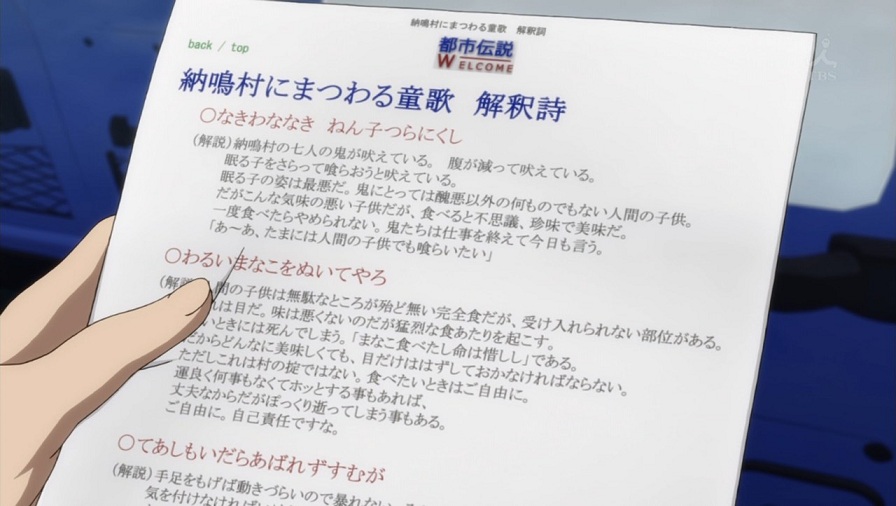 納鳴村にまつわる童歌　解釈詞
back / top
都市伝説
WELCOME
納鳴村にまつわる童歌　解釈詩
○なきわななき　ねん子つらにくし
（解説）納鳴村の七人の鬼が吠えている。　腹が減って吠えている。
眠る子をさらって喰らおうと吠えている。
眠る子の姿は最悪だ。鬼にとっては醜悪以外の何ものでもない人間の子供。
だがこんな気味の悪い子供だが、食べると不思議、珍味で美味だ。
一度食べたらやめられない。鬼たちは仕事を終えて今日も言う。
「あ～あ、たまには人間の子供でも喰らいたい」
○わるいまなこをぬいてやろ
（解説 間の子供は無駄なところが殆ど無い完全食だが、受け入れられない部位がある。
は目だ。味は悪くないのだが猛烈な食あたりを起こす。
いときには死んでしまう。「まなこ食べたし命は惜しし」である。
だからどんなに美味しくても、目だけははずしておかなければならない。
ただしこれは村の掟ではない。食べたいときはご自由に。
運良く何事もなくてホッとする事もあれば、
丈夫なからだがぽっくり逝ってしまう事もある。
ご自由に。自己責任ですな。
○てあしもいだらあばれずすむが
（解説）手足をもげば動きづらいので暴れない。
気を付けなければい
BS